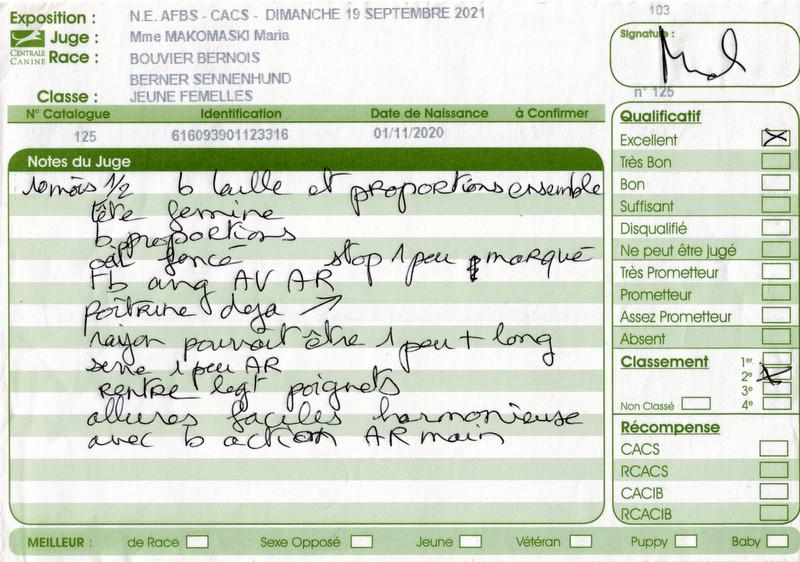 Exposition : N.E. AFBS - CACS - DIMANCHE 19 SEPTEMBRE 2021
103
Juge : Mme MAKOMASKI Maria
Signature :
CENTRALE CANINE
Race : BOUVIER BERNOIS
BERNER SENNENHUND
Classe : JEUNE FEMELLES
n° 125
N° Catalogue Identification Date de Naissance à Confirmer
125 616093901123316 01/11/2020
Notes du Juge
10 mois 1/2 b taille et proportions ensemble
tête feminine
b proportions
œil foncé stop 1 peu marqué
Fb ang AV AR
poitrine deja
rayon pourrait être 1 peu + long
serre 1 peu AR
rentre legt poignets
allures faciles harmonieuse
avec b action AR main
Qualificatif
Excellent
Très Bon
Bon
Suffisant
Disqualifié
Ne peut être jugé
Très Prometteur
Prometteur
Assez Prometteur
Absent
Classement 1er
2e
3e
Non Classé 4e
Récompense
CACS
RCACS
CACIB
RCACIB
MEILLEUR : de Race Sexe Opposé Jeune Vétéran Puppy Baby